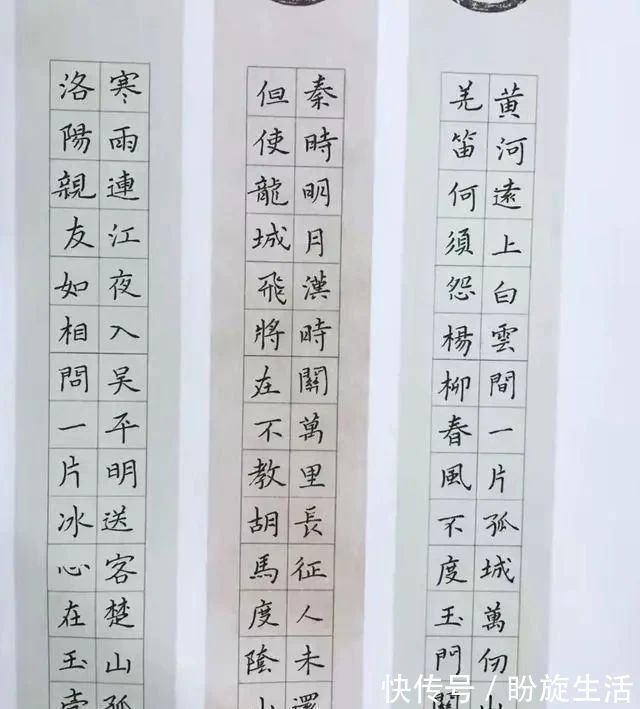 黃河遠上白雲間一片孤城萬仞山
羌笛何須怨楊柳春風不度玉門關
秦時明月漢時關萬里長征人未還
但使龍城飛將在不教胡馬度陰山
寒雨連江夜入吴平明送客楚山孤
洛陽親友如相問一片冰心在玉壺
快传号／盼旋生活